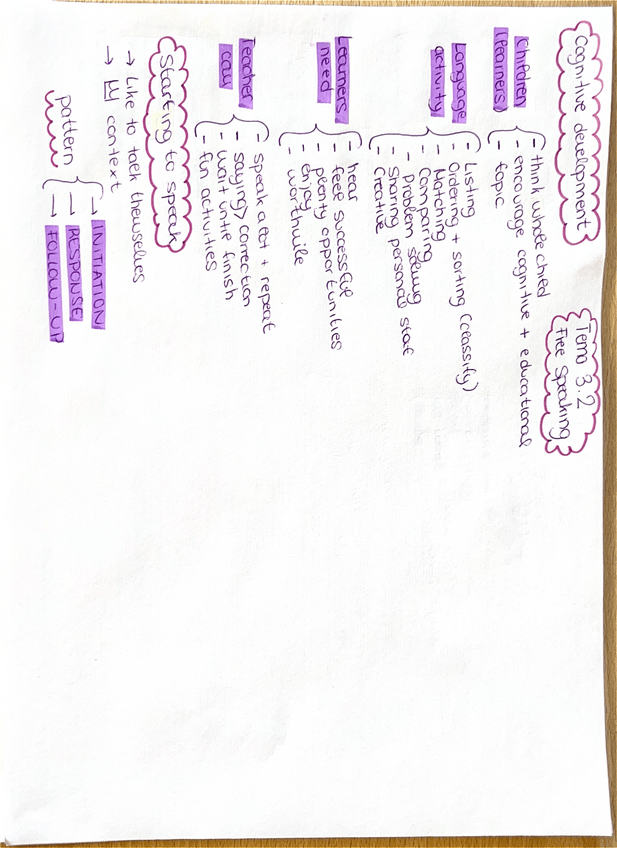 Tema 3.2
Free Speaking
Cognitive development
Children
(learners)
- think whole child
- encourage cognitive + educational
- topic
Language
activity
- Listing
- Ordering + sorting (classify)
- Matching
- Comparing
- Problem solving
- Sharing personal staf
- Creative
Learners
need
- hear
- feel successful
- plenty opportunities
- enjoy
- worthwile
Teacher
can
- speak a lot + repeat
- saying > correction
- wait until finish
- fun activities
Starting to speak
→ Like to talk themselves
→ context
pattern
→ INITIATION
→ RESPONSE
→ FOLLOW-UP